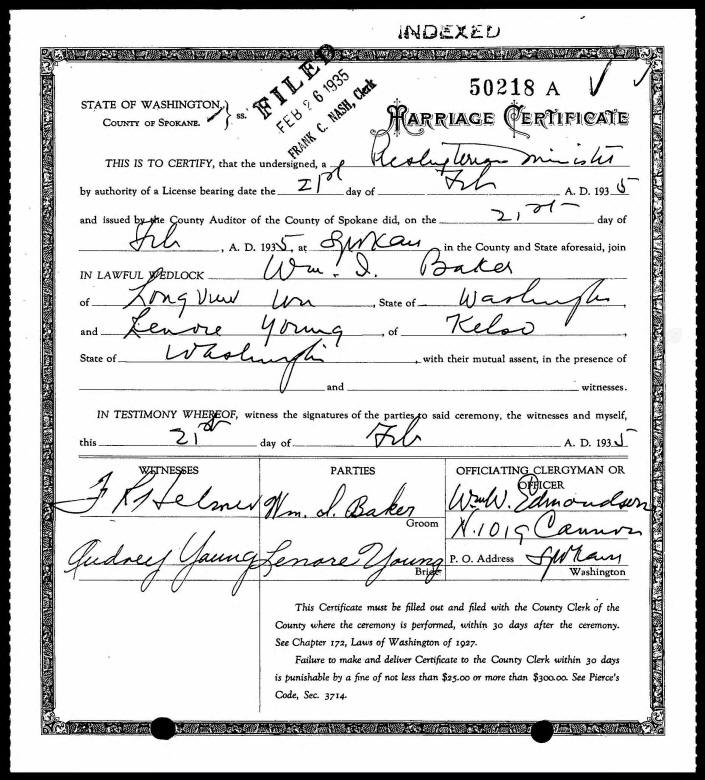 INDEXED
FILED
FEB 26 1935
FRANK C. NASH, Clerk
50218 A
STATE OF WASHINGTON,
COUNTY OF SPOKANE.
ss.
MARRIAGE CERTIFICATE
THIS IS TO CERTIFY, that the undersigned, a Presbyterian minister
by authority of a License bearing date the 21st day of Feb A. D. 1935
and issued by the County Auditor of the County of Spokane did, on the 21st day of
Feb, A. D. 1935, at Spokane in the County and State aforesaid, join
IN LAWFUL WEDLOCK Wm. I. Baker
of Longview Wn, State of Washington,
and Lenore Young, of Kelso,
State of Washington, with their mutual assent, in the presence of
and witnesses.
IN TESTIMONY WHEREOF, witness the signatures of the parties to said ceremony, the witnesses and myself,
this 21st day of Feb A. D. 1935
WITNESSES
F R Helmer
Audrey Young
PARTIES
Wm. I. Baker
Groom
Lenore Young
Bride
OFFICIATING CLERGYMAN OR
OFFICER
Wm W. Edmondson
N. 1019 Cannon
P. O. Address Spokane
Washington
This Certificate must be filled out and filed with the County Clerk of the
County where the ceremony is performed, within 30 days after the ceremony.
See Chapter 172, Laws of Washington of 1927.
Failure to make and deliver Certificate to the County Clerk within 30 days
is punishable by a fine of not less than $25.00 or more than $300.00. See Pierce's
Code, Sec. 3714.